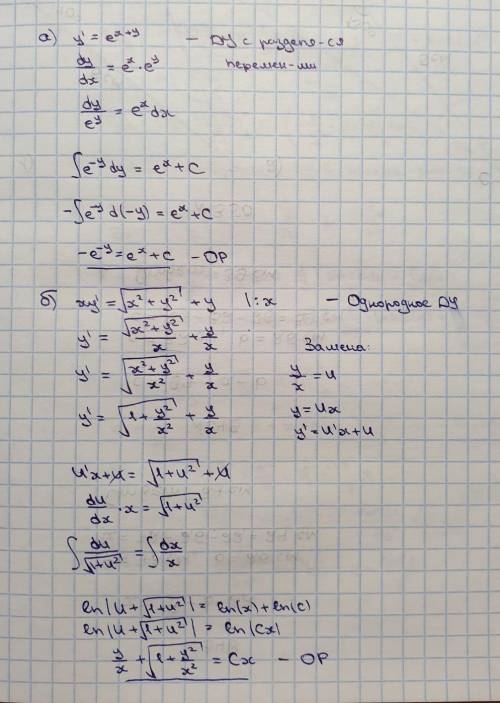 а) y' = e^{x+y} — ДУ с разделя-ся
dy/dx = e^x · e^y перемен-ми
dy/e^y = e^x dx
∫e^{-y} dy = e^x + C
-∫e^{-y} d(-y) = e^x + C
-e^{-y} = e^x + C — ОР
б) xy' = √(x² + y²) + y |:x — Однородное ДУ
y' = √(x² + y²)/x + y/x Замена:
y' = √((x² + y²)/x²) + y/x y/x = u
y' = √(1 + y²/x²) + y/x y = ux
y' = u'x + u
u'x + u = √(1 + u²) + u
du/dx · x = √(1 + u²)
∫ du/√(1 + u²) = ∫ dx/x
ln|u + √(1 + u²)| = ln(x) + ln(C)
ln|u + √(1 + u²)| = ln|Cx|
y/x + √(1 + y²/x²) = Cx — ОР